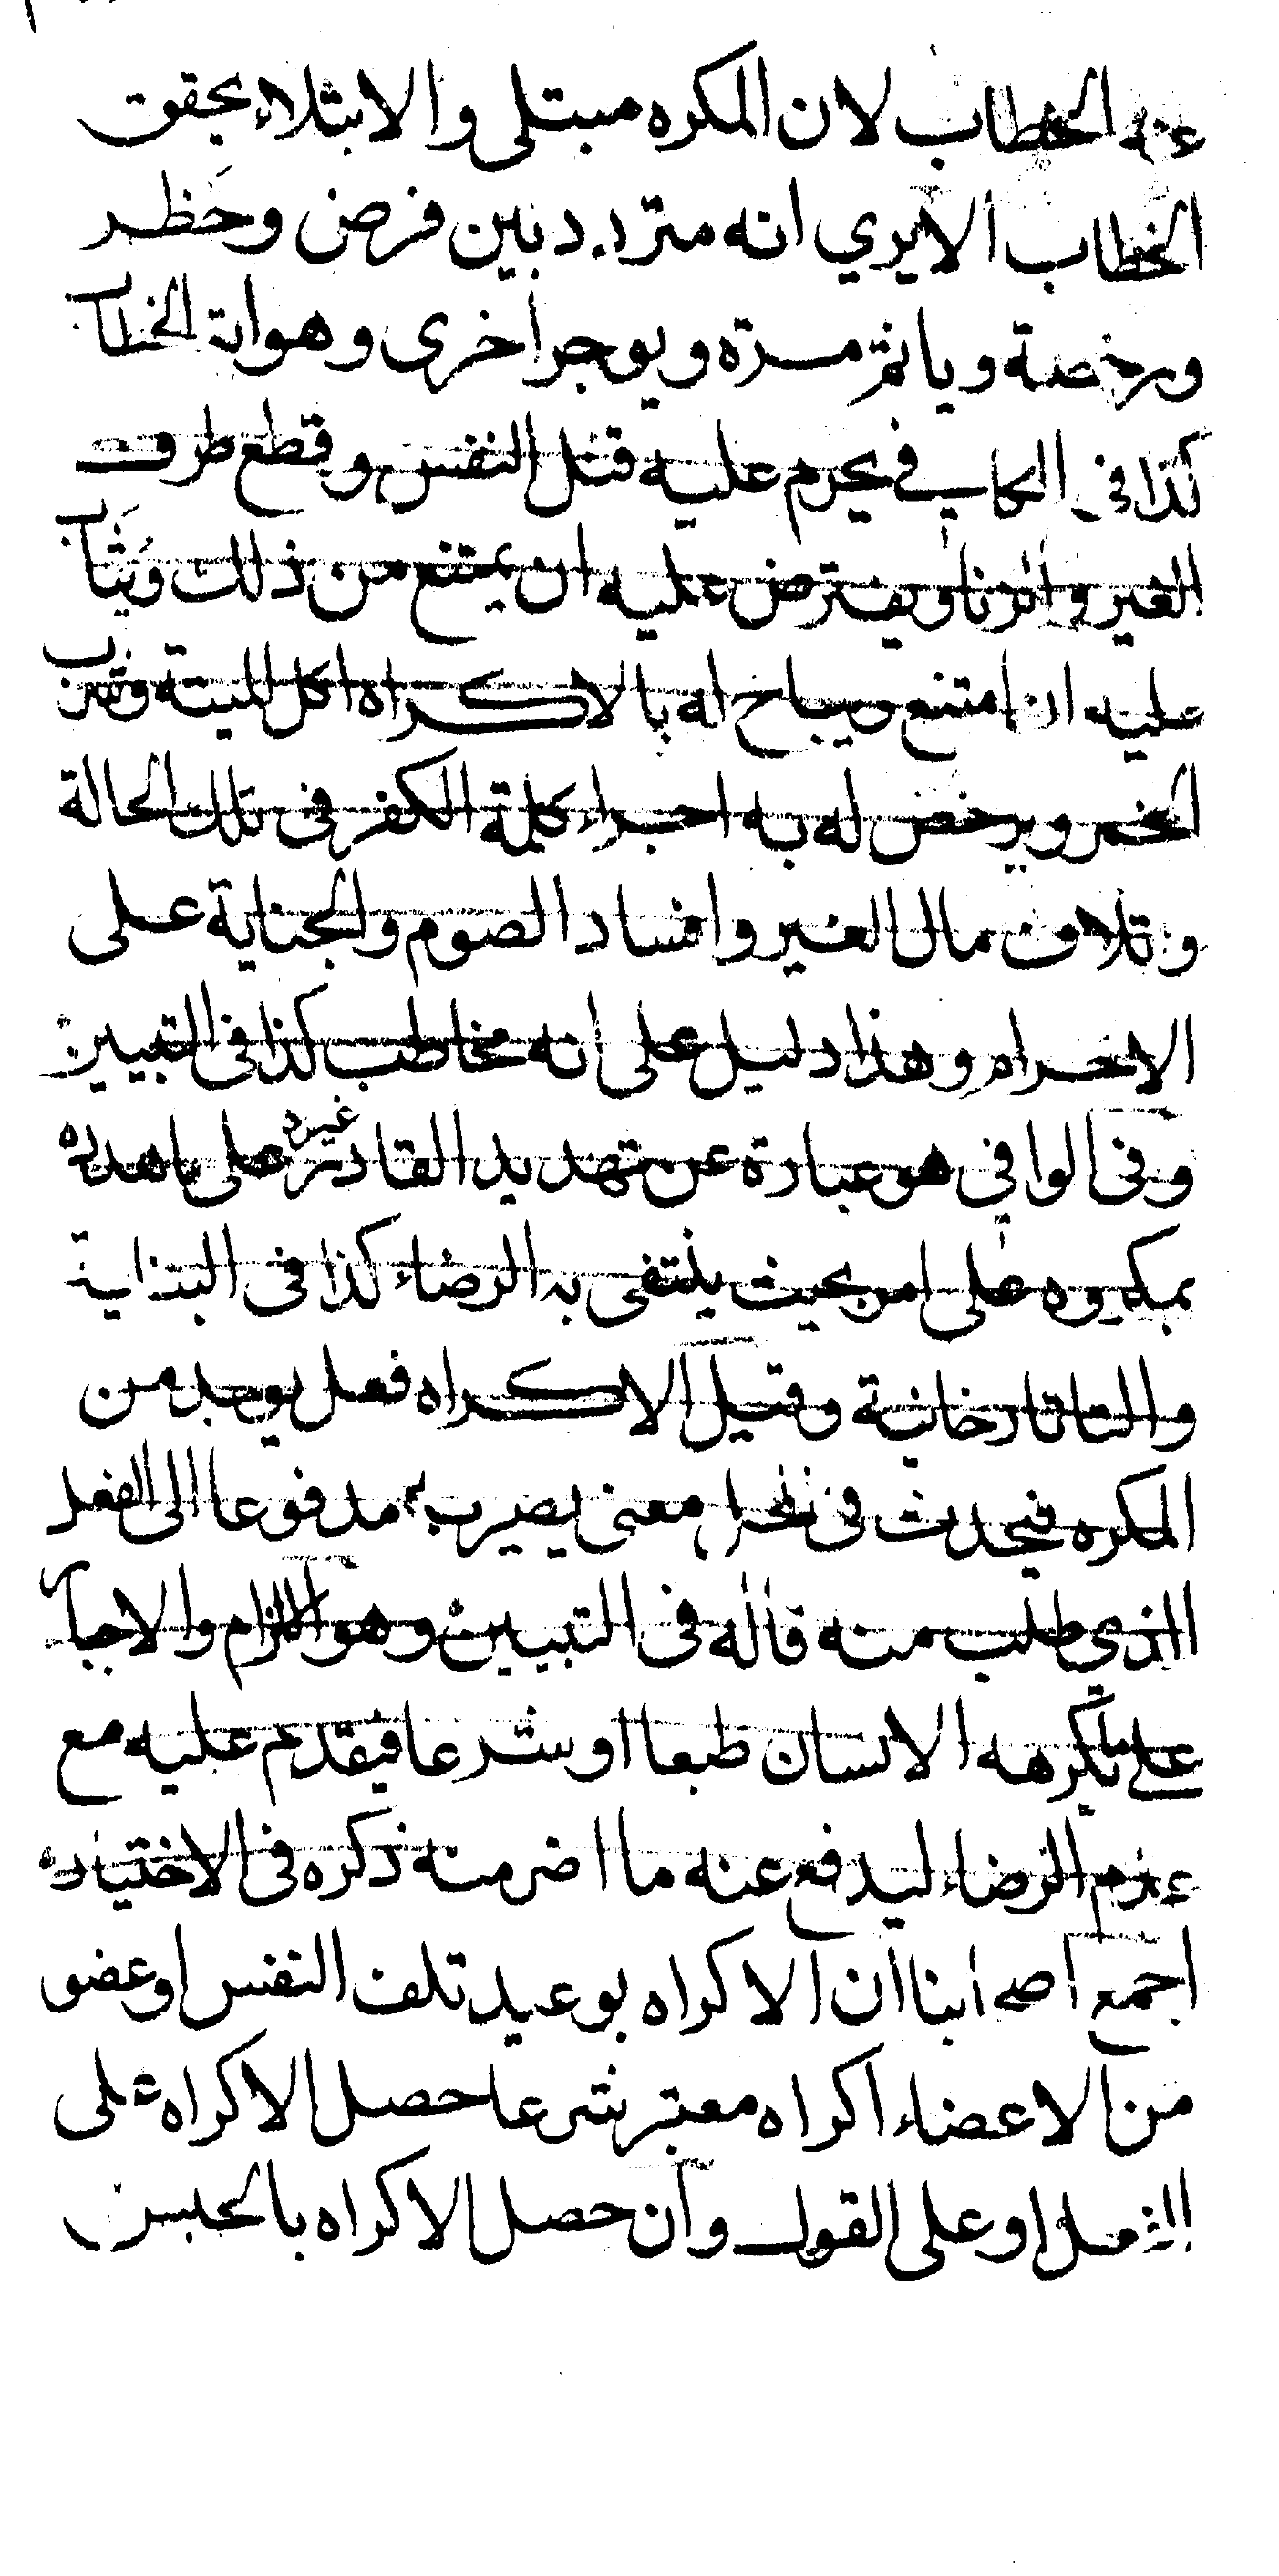 عنه الخطاب لان المكره مبتلى والابتلاء يحقق
الخطاب الا يري انه متردد بين فرض وحَظر
ورخصة وياثم مرة ويوجر اخرى وهو اية الخطاب
كذا في الكافي فيحرم عليه قتل النفس وقطع طرف
الغير والزنا ويفترض عليه ان يمتنع من ذلك ويُثَاب
عليه ان امتنع ويباح له بالاكراه اكل الميتة وشرب
الخمر ويرخص له به اجراء كلمة الكفر في تلك الحالة
وتلاف مال الغير وافساد الصوم والجناية على
الاحرام وهذا دليل على انه مخاطب كذا في التبيين
وفي الوافي هو عبارة عن تهديد القادر غيره على ما هدده
بمكروه على امر بحيث ينتفى به الرضاء كذا فى البزازية
والتاتارخانية وقيل الاكراه فعل يوجد من
المكره فيحدث فى المحل معنى يصير به مدفوعا الى الفعل
الذي طلب منه قاله فى التبيين وهو الالزام والاجبار
على ما يكرهه الانسان طبعا او شرعا فيقدم عليه مع
عدم الرضاء ليدفع عنه ما اضر منه ذكره فى الاختيار
اجمع اصحابنا ان الاكراه بوعيد تلف النفس او عضو
من الاعضاء اكراه معتبر شرعا حصل الاكراه على
الفعل او على القول وان حصل الاكراه بالحبس